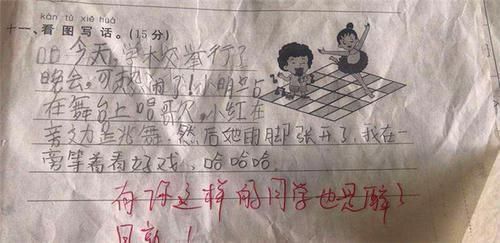 kàn tú xiě huà
十一、看图写话。(15分)
今天,学木交举行了
晚会,可热闹了!小明站
在舞台上唱哥欠,小红在
旁边跳舞,然后她两脚张开了,我在一
旁等着看好戏,哈哈哈
有你这样的同学也是醉了